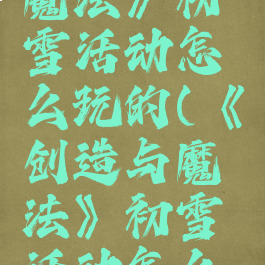 魔法》初
雪活动怎
么玩的(《
创造与魔
法》初雪
活动怎么